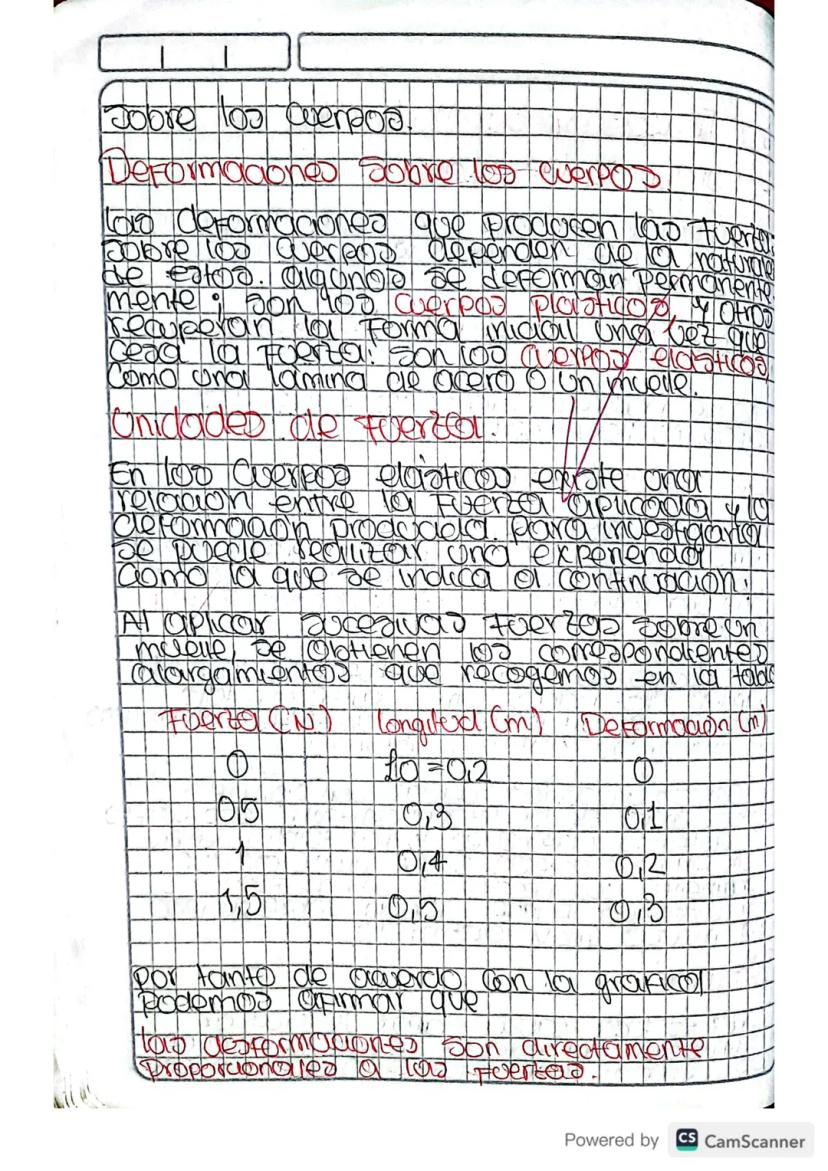 sobre los cuerpos.
Deformaciones sobre los cuerpos.
las deformaciones que producen las fuerzas
sobre los cuerpos dependen de la naturale
de estos. algunos se deforman permanente
mente; son los cuerpos plasticos, y otros
recuperan la forma inicial una vez que
cesa la fuerza: son los cuerpos elasticos,
como una lamina de acero o un muelle.
Unidades de fuerza.
En los cuerpos elásticos existe una
relacion entre la fuerza aplicada y la
deformación producida. para investigarla
se puede realizar una experiencia
como la que se indica a continuacion:
Al aplicar sucesivas fuerzas sobre un
muelle, se obtienen los correspondientes
alargamientos que recogemos en la tabla
Fuerza (N) longitud (m) Deformación (m)
0 L0 = 0,2 0
0,5 0,3 0,1
1 0,4 0,2
1,5 0,5 0,3
por tanto de acuerdo con la grafica
podemos afirmar que
las desformaciones son directamente
proporcionales a las fuerzas.
Powered by CS CamScanner